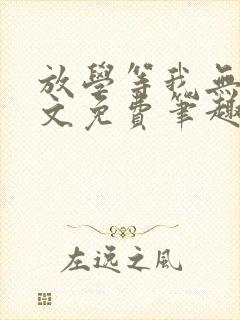 放學等我無
文免費筆趣
左逸之風